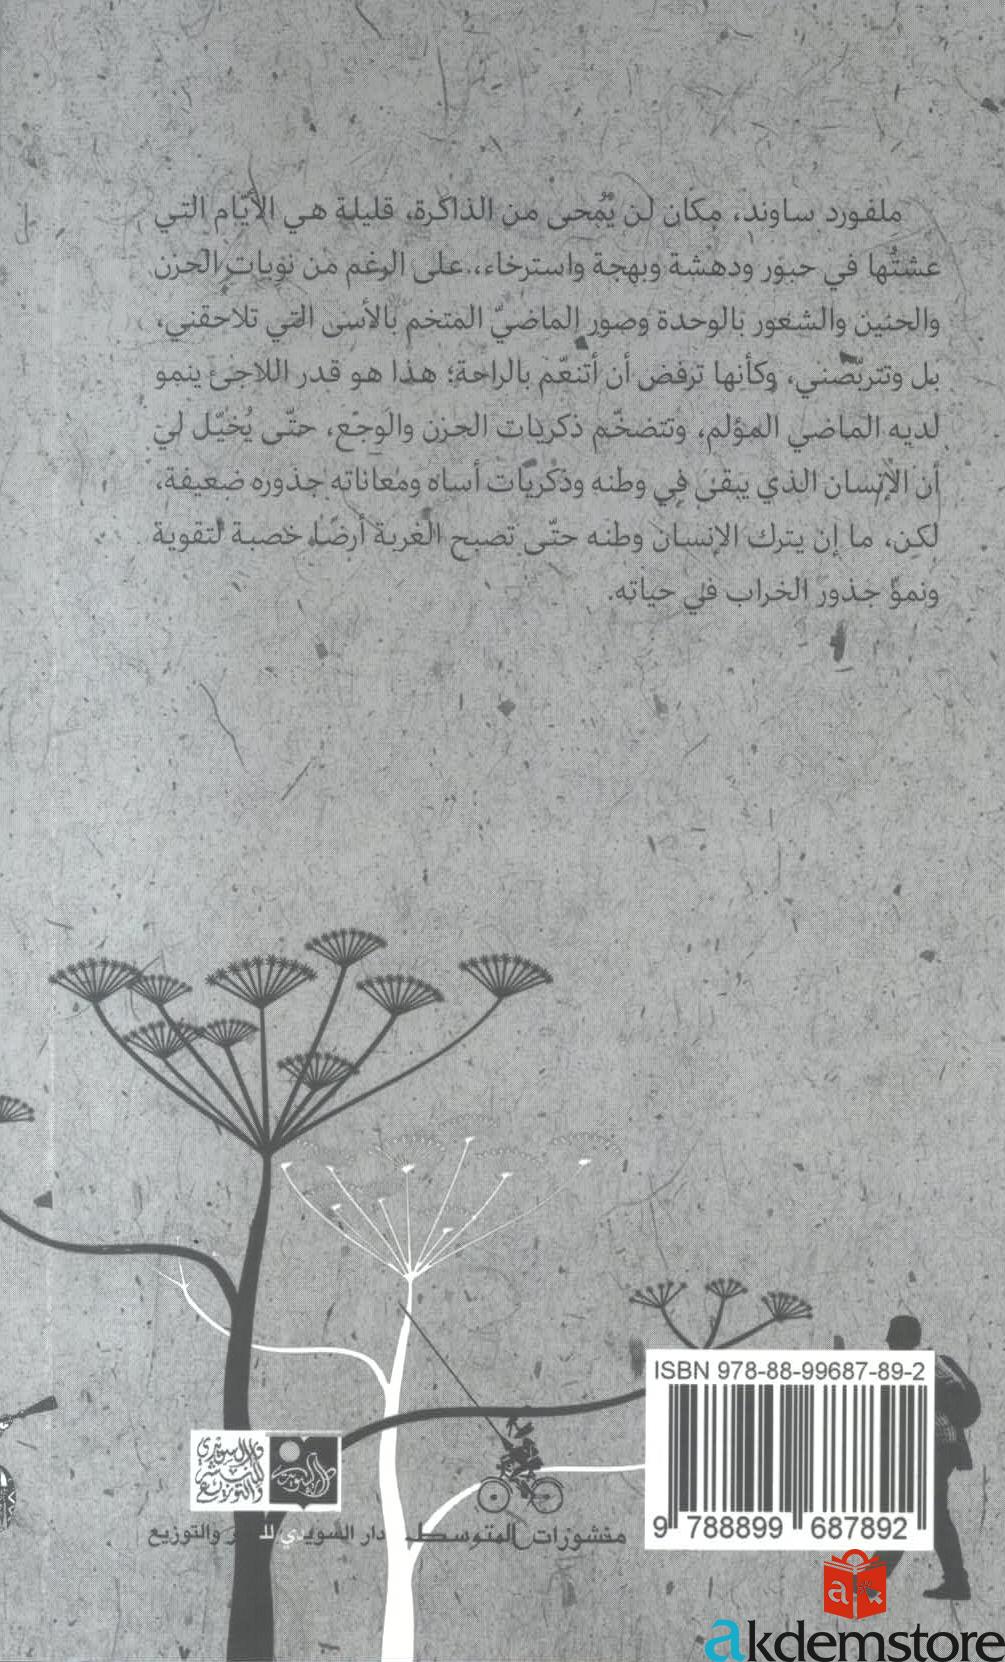 ملفورد ساوند، مكان لن يُمحى من الذاكرة، قليلة هي الأيّام التي
عشتُها في حبور ودهشة وبهجة واسترخاء، على الرغم من نوبات الحزن
والحنين والشعور بالوحدة وصور الماضيّ المتخم بالأسى التي تلاحقني،
بل وتتربّصني، وكأنها ترفض أن أتنعّم بالراحة؛ هذا هو قدر اللاجئ ينمو
لديه الماضي المؤلم، وتتضخّم ذكريات الحزن والوجع، حتّى يُخيّل لي
أن الإنسان الذي يبقى في وطنه وذكريات أساه ومعاناته جذوره ضعيفة،
لكن، ما إن يترك الإنسان وطنه حتّى تصبح الغربة أرضًا خصبة لتقوية
ونموّ جذور الخراب في حياته.
ISBN 978-88-99687-89-2
9 788899 687892
دار السويدي
للنشر
والتوزيع
السويدي
منشورات المتوسط
دار السويدي للنشر والتوزيع
a
akdemstore